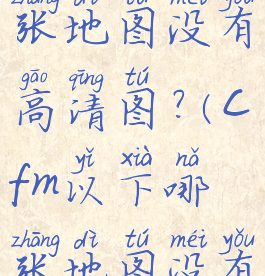 zhāng dì tú méi yǒu
张地图没有
gāo qīng tú
高清图?(C
yǐ xià nǎ
fm以下哪
zhāng dì tú méi yǒu
张地图没有